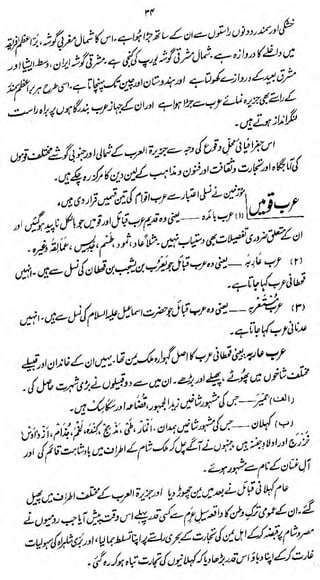 ۳۴
خشکی اور سمندر دونوں راستوں سے ان کے ساتھ جڑا ہوا ہے۔ اس کا شمال مغربی گوشہ، برّ اعظم افریقہ
میں داخلے کا دروازہ ہے۔ شمال مشرقی گوشہ یورپ کی کنجی ہے۔ مشرقی گوشہ ایران، وسط ایشیا اور
مشرق بعید کے دروازے کھولتا ہے اور ہندوستان اور چین تک پہنچاتا ہے، اسی طرح ہر برّ اعظم سمندر
کے راستے بھی جزیرہ نمائے عرب سے جڑا ہوا ہے اور ان کے جہاز عرب بندرگاہوں پر براہ راست
لنگر انداز ہوتے ہیں۔
اس جغرافیائی محل وقوع کی وجہ سے جزیرۃ العرب کے شمالی اور جنوبی گوشے مختلف قوموں
کی آماجگاہ اور تجارت و ثقافت اور فنون و مذاہب کے لین دین کا مرکز رہ چکے ہیں۔
عرب قومیں مؤرخین نے نسلی اعتبار سے عرب اقوام کی تین قسمیں قرار دی ہیں۔
(۱) عرب بائدہ — یعنی وہ قدیم عرب قبائل اور قومیں جو بالکل ناپید ہوگئیں اور
ان کے متعلق ضروری تفصیلات بھی دستیاب نہیں۔ مثلاً عاد، ثمود، طسم، جدیس، عمالقہ وغیرہ۔
(۲) عرب عاربہ — یعنی وہ عرب قبائل جو یعرب بن یشجب بن قحطان کی نسل سے ہیں۔ انہیں
قحطانی عرب کہا جاتا ہے۔
(۳) عرب مستعربہ — یعنی وہ عرب قبائل جو حضرت اسماعیل علیہ السلام کی نسل سے ہیں۔ انہیں
عدنانی عرب کہا جاتا ہے۔
عرب عاربہ یعنی قحطانی عرب کا اصل گہوارہ ملک یمن تھا۔ یہیں ان کے خاندان اور قبیلے
مختلف شاخوں میں پھوٹے، پھیلے اور بڑھے۔ ان میں سے دو قبیلوں نے بڑی شہرت حاصل کی۔
(الف) حمیر — جس کی مشہور شاخیں زید الجمہور، قضاعہ اور سکاسک ہیں۔
(ب) کہلان — جس کی مشہور شاخیں ہمدان، انمار، طیٔ، مذحج، کندہ، لخم، جذام، ازد، اوس،
خزرج اور اولاد جفنہ ہیں، جنہوں نے آگے چل کر ملک شام کے اطراف میں بادشاہت قائم کی اور
آل غسان کے نام سے مشہور ہوئے۔
عام کہلانی قبائل نے بعد میں یمن چھوڑ دیا اور جزیرۃ العرب کے مختلف اطراف میں پھیل
گئے۔ ان کے عمومی ترک وطن کا واقعہ سیل عرم سے کسی قدر پہلے اس وقت پیش آیا جب رومیوں نے
مصر و شام پر قبضہ کر کے اہل یمن کی تجارت کے بحری راستے پر اپنا تسلط جما لیا، اور بری شاہراہ کی سہولیات
غارت کر کے اپنا دباؤ اس قدر بڑھا دیا کہ کہلانیوں کی تجارت تباہ ہو کر رہ گئی۔